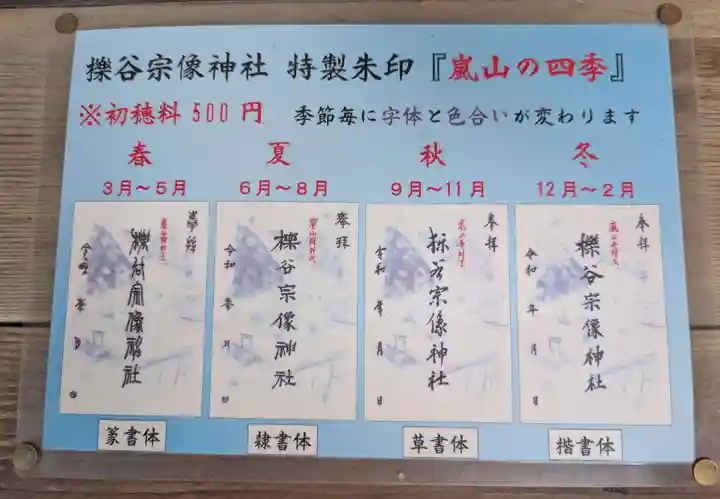 櫟谷宗像神社 特製朱印『嵐山の四季』
※初穂料500円 季節毎に字体と色合いが変わります
春 夏 秋 冬
3月~5月 6月~8月 9月~11月 12月~2月
奉拝
櫟谷宗像神社
令和 年 月 日
奉拝
櫟谷宗像神社
令和 年 月 日
奉拝
櫟谷宗像神社
令和 年 月 日
奉拝
櫟谷宗像神社
令和 年 月 日
篆書体 隷書体 草書体 楷書体